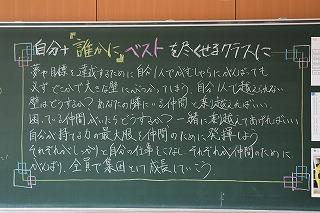 自分+誰かにベストを尽くせるクラスに
夢や目標を達成するために自分1人でがむしゃらにがんばっても
必ずどこかで大きな壁にぶつかってしまう。自分1人で越えられない
壁はどうするか？あなたの隣にいる仲間と乗り越えればいい。
困っている仲間がいたらどうするか？一緒に乗り越えてあげればいい
自分が持てる力の最大限を仲間のために発揮しよう
それぞれがしっかりと自分の仕事をこなし それぞれが仲間のために
がんばり、全員で集団として成長していこう